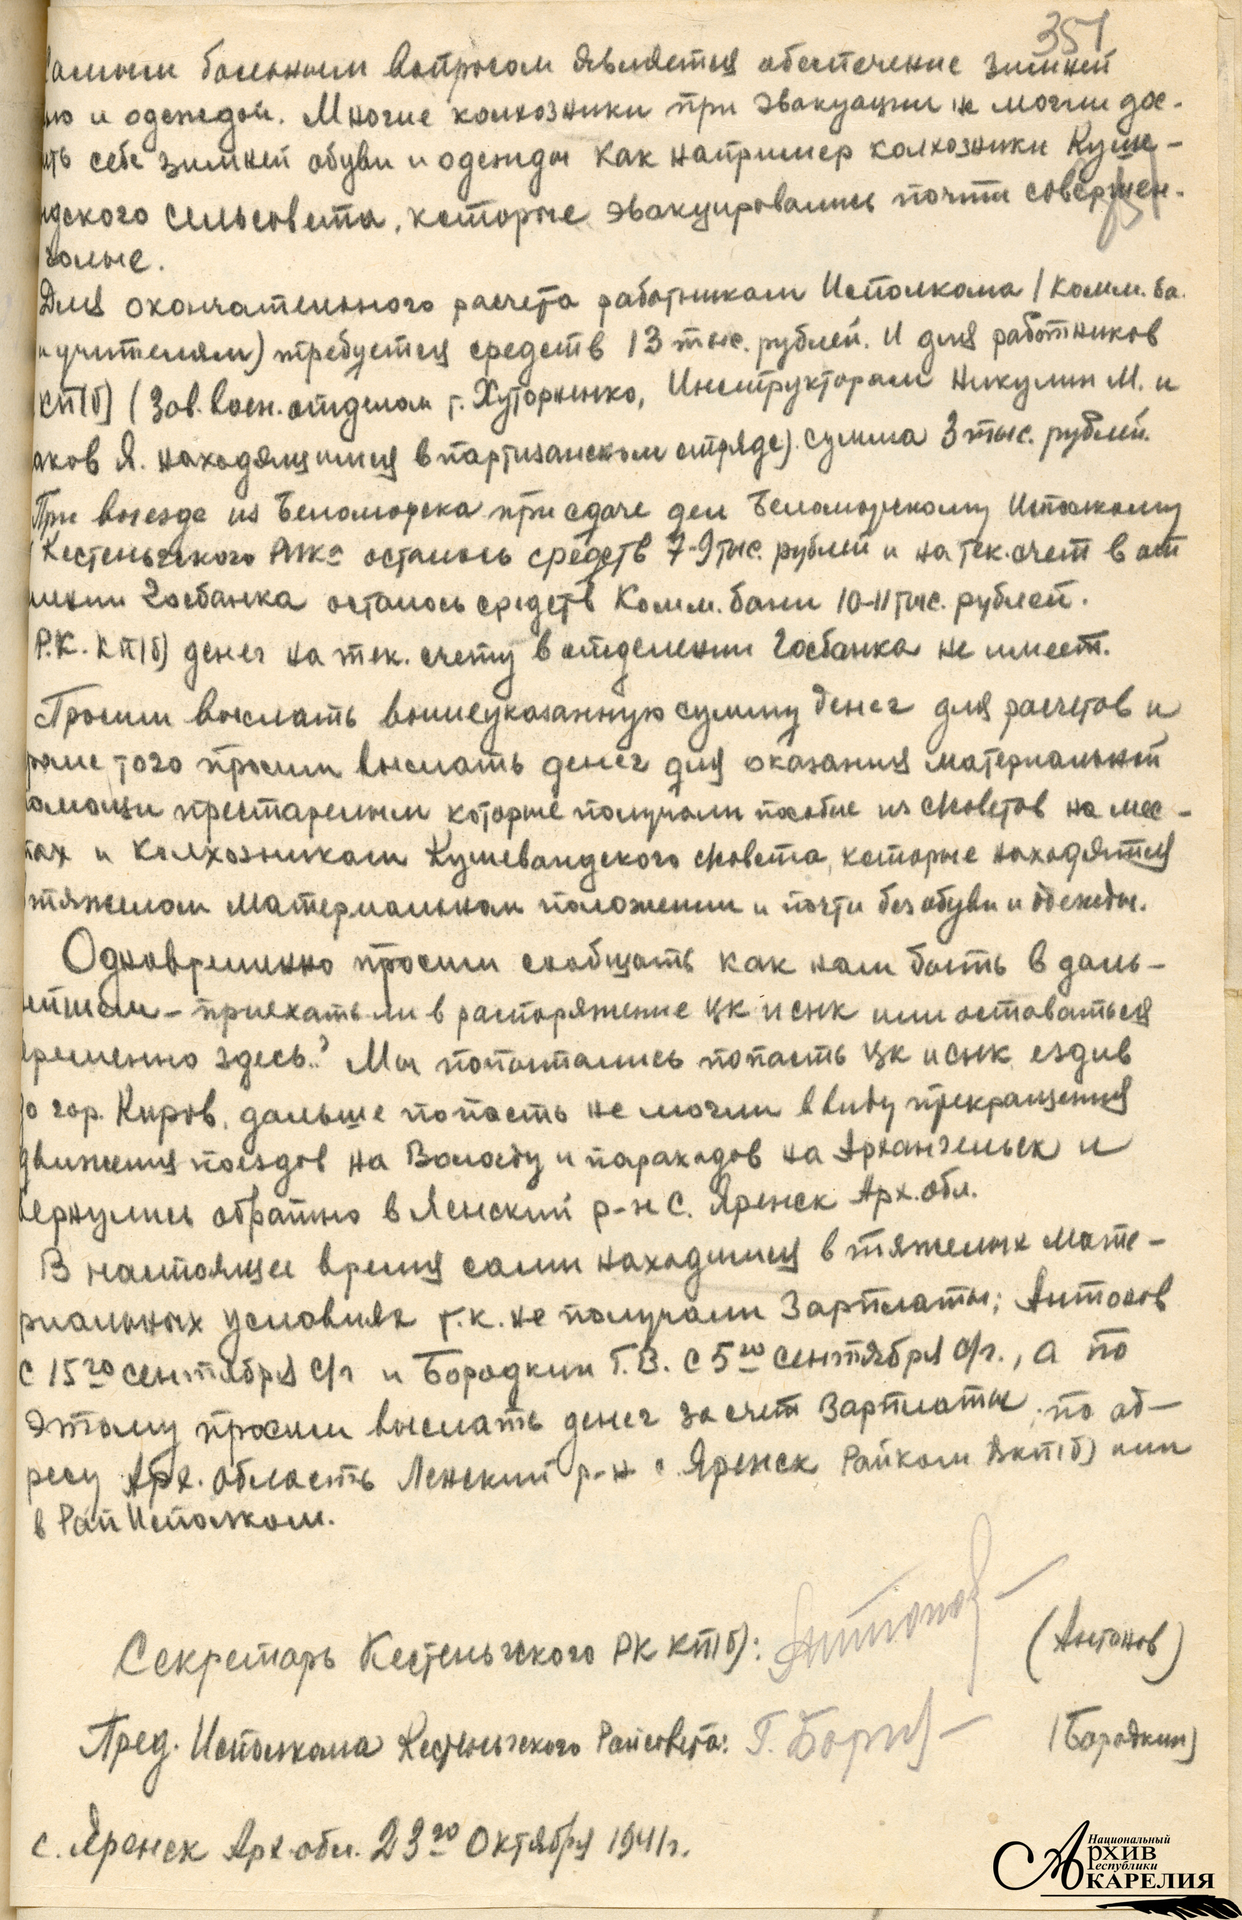 351
самым больным вопросом является обеспечение зимней
ью и одеждой. Многие колхозники при эвакуации не могли дос-
ить себе зимней обуви и одежды как например колхозники Куше-
ндского сельсовета, которые эвакуировались почти совершен-
голые.
Для окончательного расчета работникам Исполкома (Комм. ба.
и учителям) требуется средств 13 тыс. рублей. И для работников
КП(б) (Зав. воен. отделом т. Хуторненко, Инструкторам Никулин М. и
аков Я. находящимися в партизанском отряде) сумма 3 тыс. рублей.
При выезде из Беломорска при сдаче дел Беломорскому Исполкому
Кестеньгского РИКа осталось средств 7-9 тыс. рублей и на тек. счет в отд
лении Госбанка осталось средств Комм. бани 10-11 тыс. рублей.
Р.К. КП(б) денег на тек. счету в отделении Госбанка не имеет.
Просим выслать вышеуказанную сумму денег для расчетов и
роме того просим выслать денег для оказания материальной
омощи престарелым которые получали пособие из с/советов на мес-
тах и колхозникам Кушевандского с/совета, которые находятся
тяжелом материальном положении и почти без обуви и одежды.
Одновременно просим сообщить как нам быть в даль-
ейшем - приехать ли в распоряжение ЦК и СНК или оставаться
временно здесь.? Мы попытались попасть ЦК и СНК ездив
до гор. Киров, дальше попасть не могли ввиду прекращения
движения поездов на Вологду и пароходов на Архангельск и
вернулись обратно в Ленский р-н с. Яренск Арх. обл.
В настоящее время сами находимся в тяжелых мате-
риальных условиях т.к. не получали зарплаты; Антонов
с 15го сентября с/г и Бородкин Г.В. с 5го сентября с/г., а по
этому просим выслать денег за счет зарплаты по ад-
ресу Арх. область Ленский р-н с. Яренск Райком ВКП(б) или
в РайИсполком.
Секретарь Кестеньгского РК КП(б): Антонов (Антонов)
Пред. Исполкома Кестеньгского Райсовета: Г. Бород (Бородкин)
с. Яренск Арх. обл. 23го Октября 1941г.
Национальный
Архив
Республики
Карелия